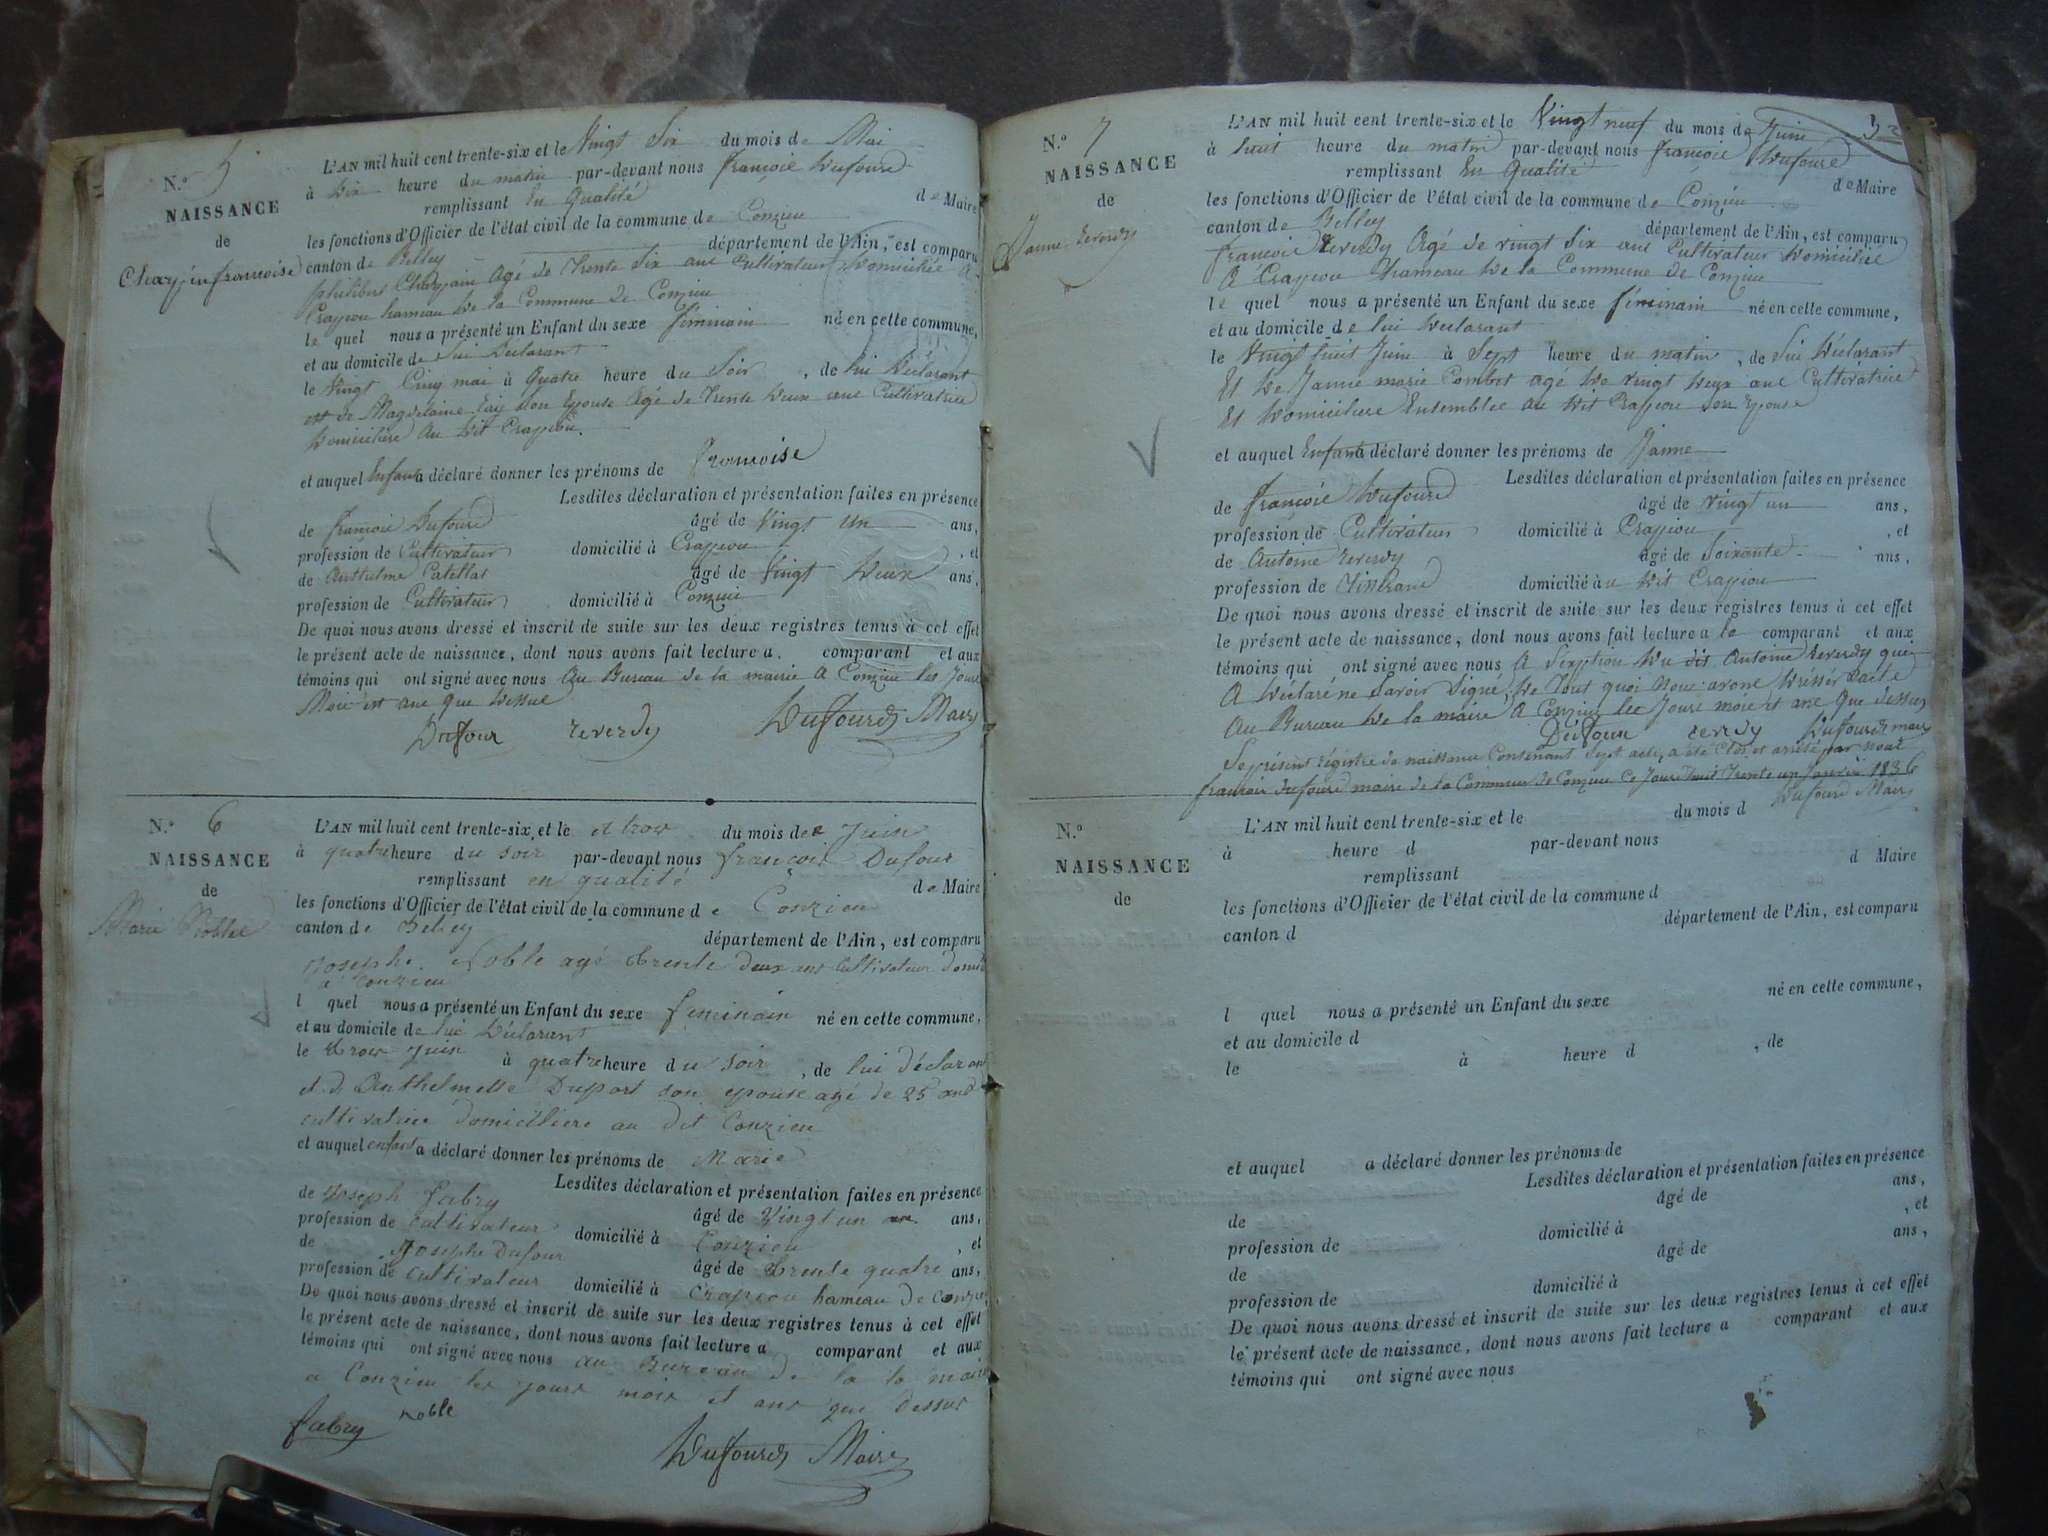 N.º 5
NAISSANCE
de
Charpin françoise
L'AN mil huit cent trente-six et le Vingt Six du mois de Mai
à dix heure du matin par-devant nous françois Dufourd
remplissant En Qualité de Maire
les fonctions d'Officier de l'état civil de la commune de Conzieu
canton de Belley département de l'Ain, est comparu
philibert Charpin Agé de Trente Six ans Cultivateur Domicilié A
Crapiou hameau de la Commune de Conzieu
le quel nous a présenté un Enfant du sexe féminain né en cette commune,
et au domicile de lui Déclarant
le Vingt Cinq mai à Quatre heure du Soir, de lui Déclarant
et de Magdelaine son Epouse Agé de Trente Deux ans Cultivatrice
Domiciliere Au dit Crapiou.
et auquel Enfant a déclaré donner les prénoms de francoise
Lesdites déclaration et présentation faites en présence
de françois Dufourd âgé de Vingt un ans,
profession de Cultivateur domicilié à Crapiou, et
de Anthelme Catellat âgé de Vingt Deux ans,
profession de Cultivateur domicilié à Conzieu
De quoi nous avons dressé et inscrit de suite sur les deux registres tenus à cet effet
le présent acte de naissance, dont nous avons fait lecture a comparant et aux
témoins qui ont signé avec nous Au Bureau de la mairie A Conzieu les Jours
Mois et ans que Dessus
Dufour reverdy Dufourd Maire
N.º 6
NAISSANCE
de
Marie Noblet
L'AN mil huit cent trente-six et le et trois du mois de Juin
à quatre heure du soir par-devant nous françois Dufour
remplissant en qualité de Maire
les fonctions d'Officier de l'état civil de la commune de Conzieu
canton de Beley département de l'Ain, est comparu
Josephe Noble agé trente deux ans Cultivateur domi
a Conzieu
l quel nous a présenté un Enfant du sexe feminain né en cette commune,
et au domicile de lui Déclarant
le trois Juin à quatre heure du soir, de lui déclarant
et d Anthelmette Duport son epouse agé de 25 ans
cultivatrice domiciliere au dit Conzieu
et auquel enfant a déclaré donner les prénoms de Marie
Lesdites déclaration et présentation faites en présence
de Joseph fabry âgé de Vingt un ans,
profession de cultivateur domicilié à Conzieu, et
de Josephe Dufour âgé de trente quatre ans,
profession de cultivateur domicilié à Crapiou hameau de Conzieu
De quoi nous avons dressé et inscrit de suite sur les deux registres tenus à cet effet
le présent acte de naissance, dont nous avons fait lecture a comparant et aux
témoins qui ont signé avec nous au Bureau de la la mairie
a Conzieu les jours mois et ans que dessus
fabry noble
Dufourd Maire
32
N.º 7
NAISSANCE
de
Janne reverdy
L'AN mil huit cent trente-six et le Vingt neuf du mois de Juin
à huit heure du matin par-devant nous françois Dufourd
remplissant En Qualité de Maire
les fonctions d'Officier de l'état civil de la commune de Conzieu
canton de Belley département de l'Ain, est comparu
francois Reverdy Agé de vingt Six ans Cultivateur Domicilié
A Crapiou hameau de la Commune de Conzieu
le quel nous a présenté un Enfant du sexe féminain né en cette commune,
et au domicile de lui Déclarant
le Vingt huit Juin à Sept heure du matin, de lui Déclarant
Et de Janne marie Combet agé de vingt deux ans Cultivatrice
Et Domiciliere Ensemblee au dit Crapiou son Epouse
et auquel Enfant a déclaré donner les prénoms de Janne
Lesdites déclaration et présentation faites en présence
de françois Dufourd âgé de vingt un ans,
profession de Cultivateur domicilié à Crapiou, et
de Antoine reverdy âgé de Soixante ans,
profession de Tisserand domicilié à u dit Crapiou
De quoi nous avons dressé et inscrit de suite sur les deux registres tenus à cet effet
le présent acte de naissance, dont nous avons fait lecture a le comparant et aux
témoins qui ont signé avec nous A Lexeption du dit Antoine reverdy qui
A Declaré ne Savoir Signé De Tout quoi nous avons Dressér Lacte
Au Bureau de la mairie A Conzieu les Jours mois et ans Que dessus
Dufour reverdy Dufourd maire
Le présent régistre de naissance Contenant Sept acte, a été Clos et arrété par nous
francois dufourd maire de la Commune de Conzieu Ce Jourdhuit Trente un Janvié 1836
Dufourd Maire
N.º
NAISSANCE
de
L'AN mil huit cent trente-six et le du mois d
à heure d par-devant nous
remplissant d Maire
les fonctions d'Officier de l'état civil de la commune d
canton d département de l'Ain, est comparu
l quel nous a présenté un Enfant du sexe né en cette commune,
et au domicile d
le à heure d , de
et auquel a déclaré donner les prénoms de
Lesdites déclaration et présentation faites en présence
de âgé de ans,
profession de domicilié à , et
de âgé de ans,
profession de domicilié à
De quoi nous avons dressé et inscrit de suite sur les deux registres tenus à cet effet
le présent acte de naissance, dont nous avons fait lecture a comparant et aux
témoins qui ont signé avec nous